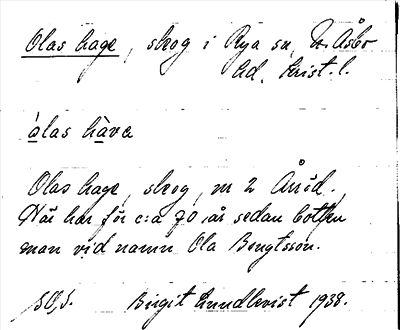 Olas hage, skog i Rya sn, N. Åsbo
hd, Krist. l.
ålas håva
Olas hage, skog, nr 2 Årröd.
Här har för c:a 70 år sedan bott en
man vid namn Ola Bengtsson.
Birgit Lundkvist 1938.